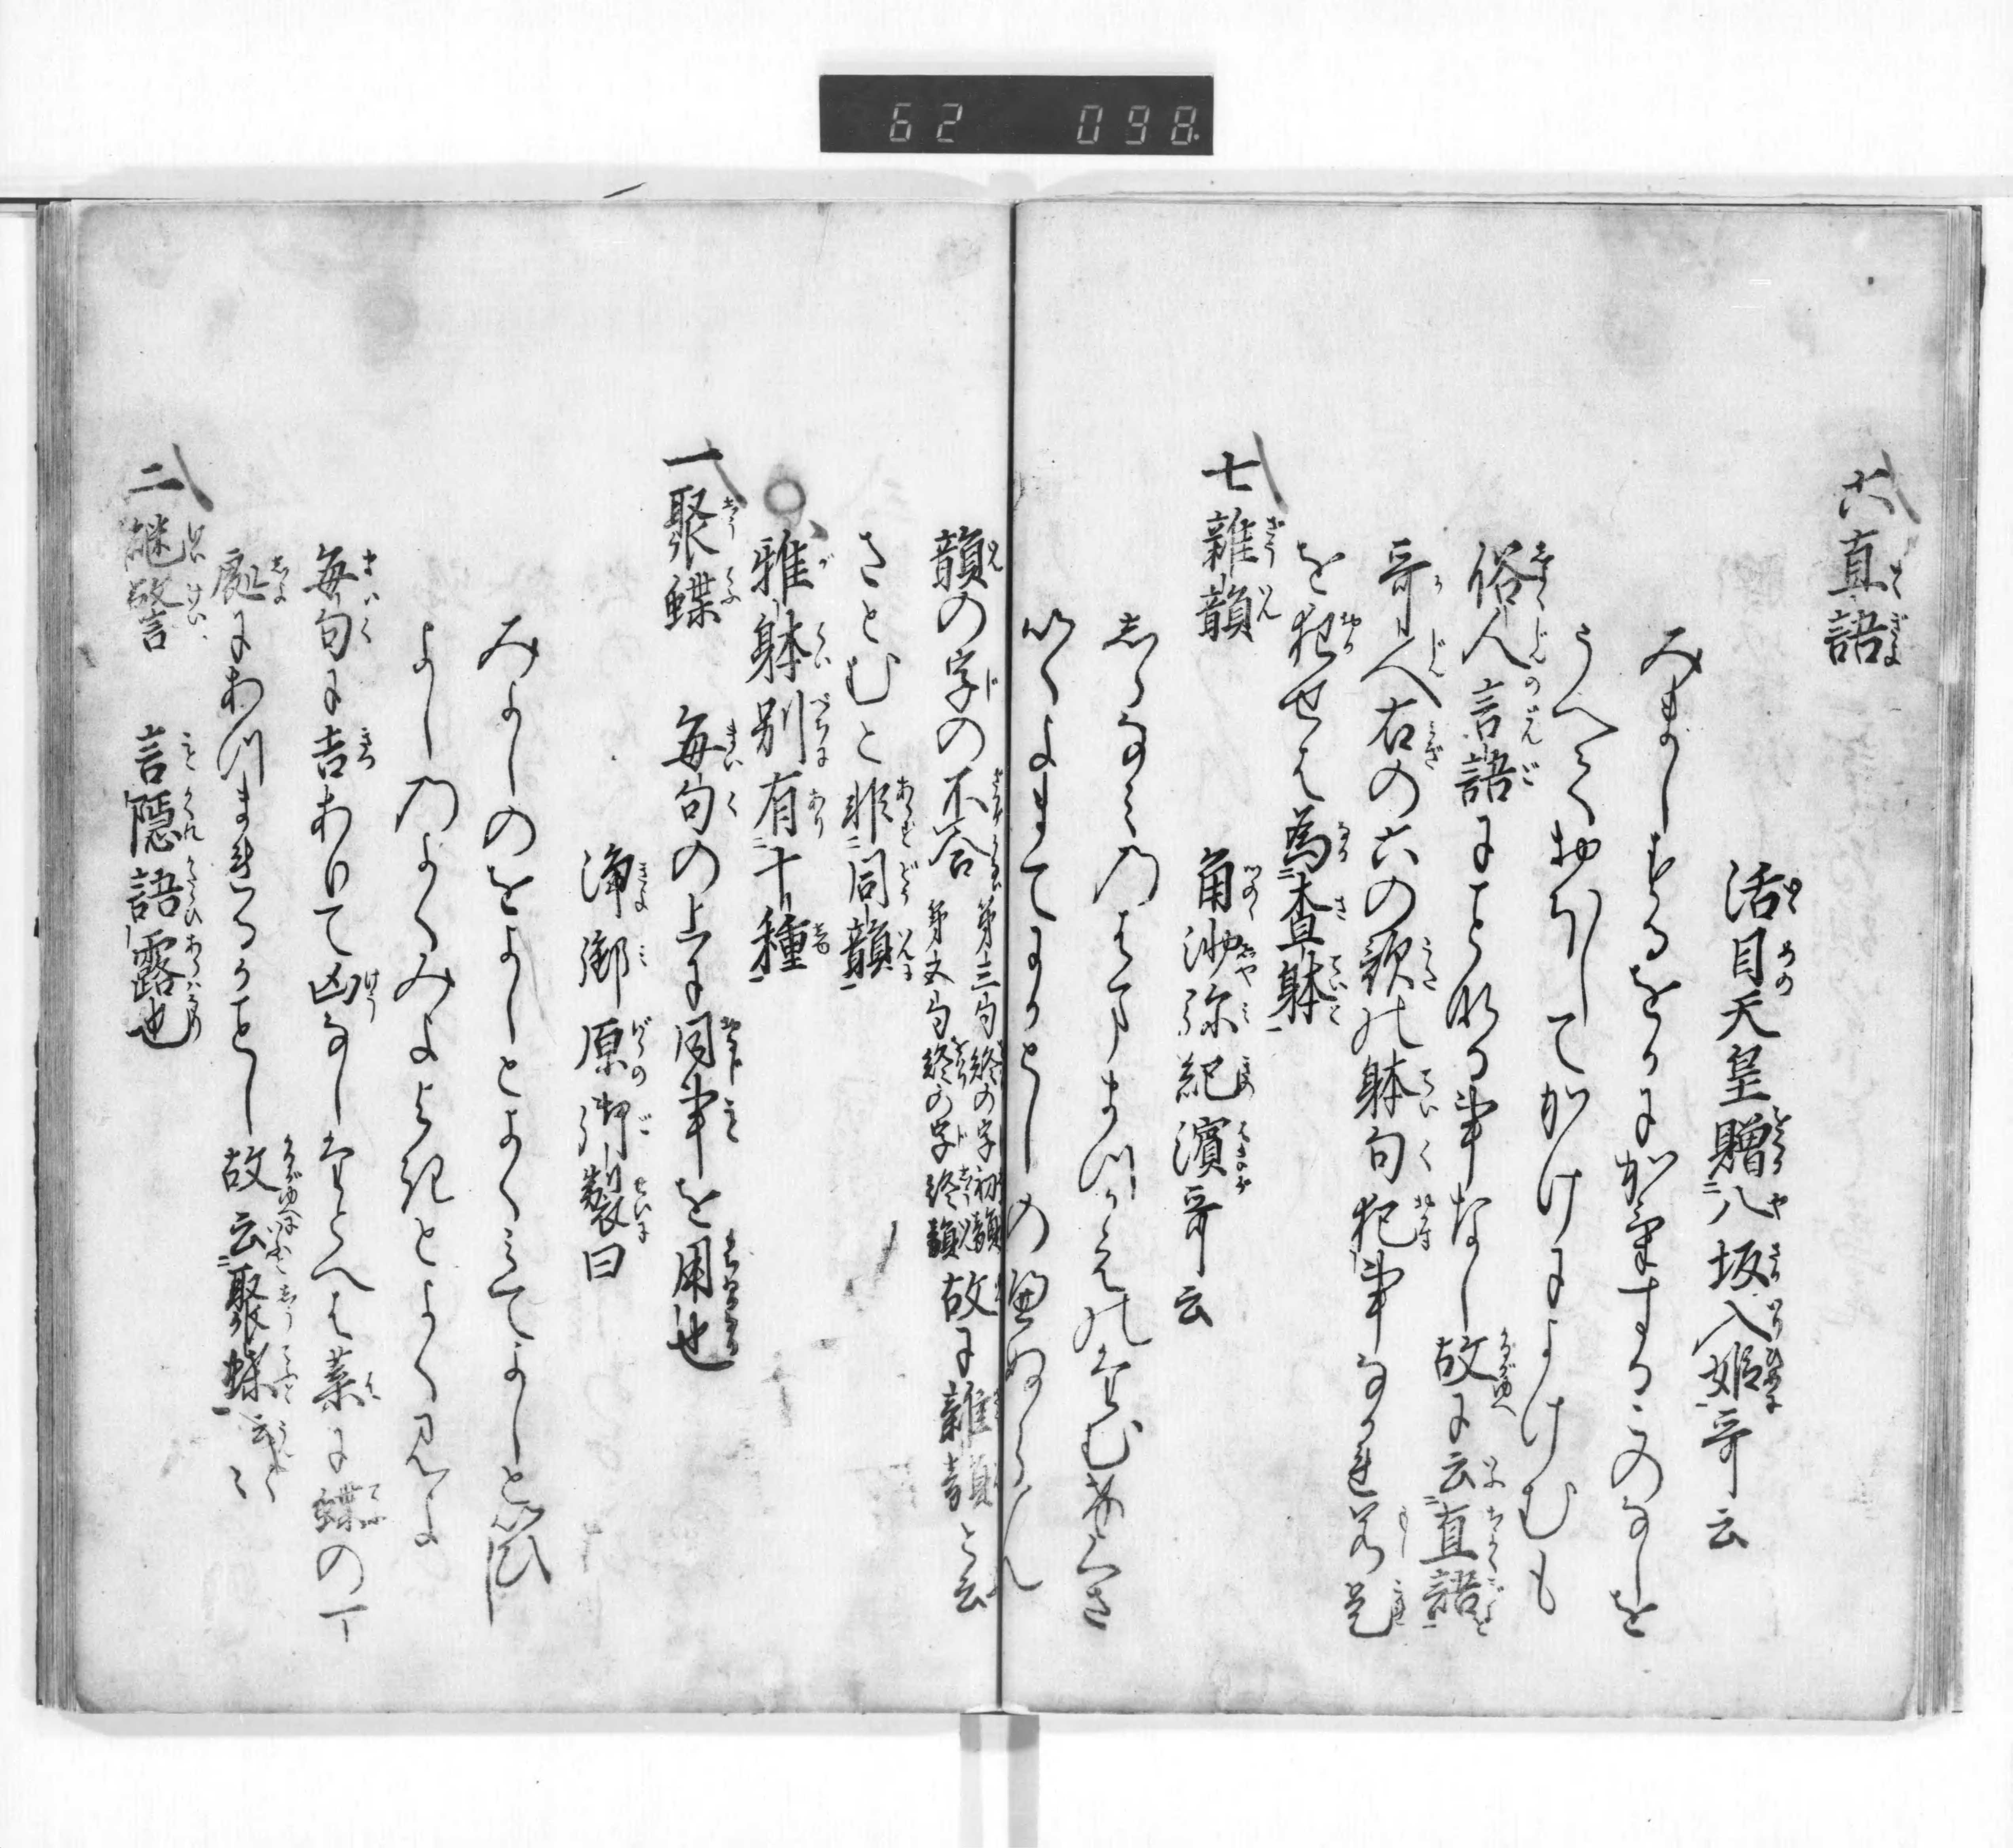 62 098
六 直語
活目天皇贈八坂入姫哥云
みましもるをかに加美するこのなしを
うへておほしてかけによけむも
俗人言語にことなる事なし故に云直語
哥人右の六の歌の躰句犯事なかれ若是
を犯せは為査躰
七 雜韻
角沙弥紀濱哥云
しらなみのはままつかえのたむけくさ
いくよまてにかとしのへぬらん
韻の字の不合 第三句終の字初韻 第五句終の字終韻 故に雜韻と云
さとむと非同韻
雅躰別有十種
一 聚蝶 毎句の上に同事を用也
浄御原御製曰
みよしのをよしとよくみてよしといひ
よしのよくみよよきとよく見よ
毎句に吉ありて凶なしたとへは葉に蝶の一
處にあつまれるかことし故云聚蝶云々
二 継警 言隠語露也